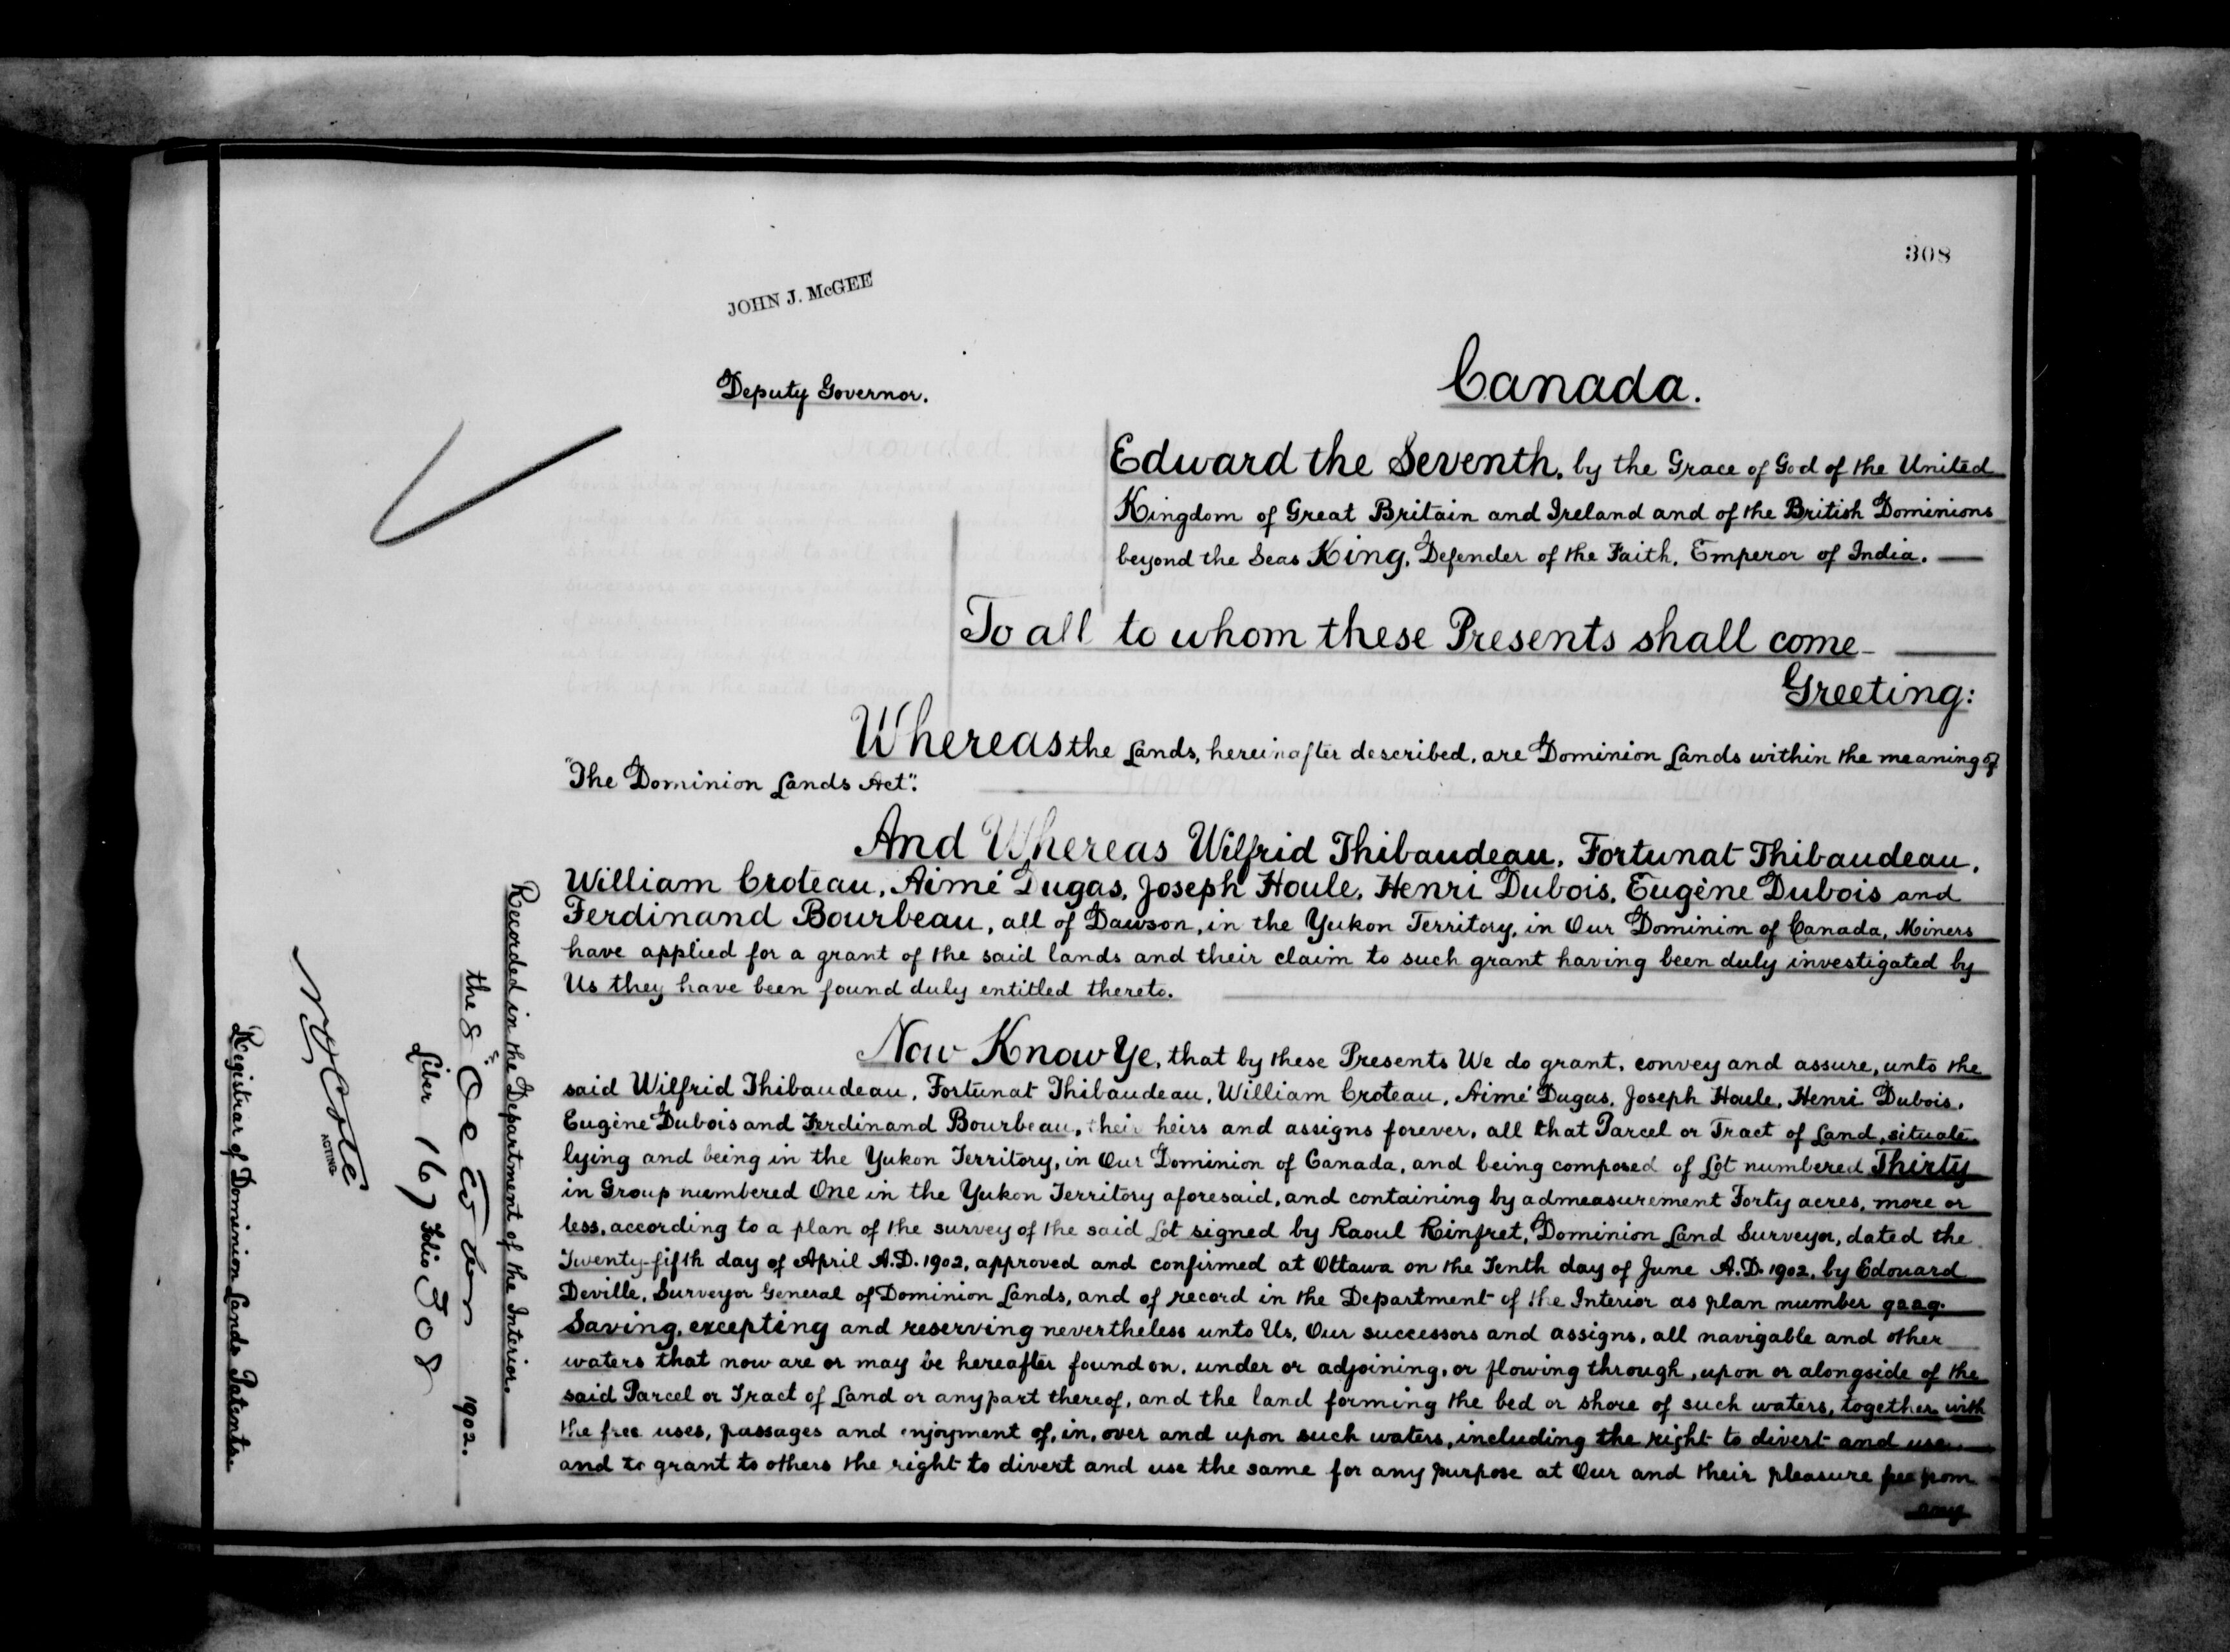 308
JOHN J. McGEE
Deputy Governor.
Canada.
Edward the Seventh, by the Grace of God of the United
Kingdom of Great Britain and Ireland and of the British Dominions
beyond the Seas King, Defender of the Faith, Emperor of India.
To all to whom these Presents shall come
Greeting:
Whereas the Lands, hereinafter described, are Dominion Lands within the meaning of
"The Dominion Lands Act".
And Whereas Wilfrid Thibaudeau, Fortunat Thibaudeau,
William Croteau, Aimé Dugas, Joseph Houle, Henri Dubois, Eugène Dubois and
Ferdinand Bourbeau, all of Dawson, in the Yukon Territory, in Our Dominion of Canada, Miners
have applied for a grant of the said lands and their claim to such grant having been duly investigated by
Us they have been found duly entitled thereto.
Now Know Ye, that by these Presents We do grant, convey and assure, unto the
said Wilfrid Thibaudeau, Fortunat Thibaudeau, William Croteau, Aimé Dugas, Joseph Houle, Henri Dubois,
Eugène Dubois and Ferdinand Bourbeau, their heirs and assigns forever, all that Parcel or Tract of Land, situate
lying and being in the Yukon Territory, in Our Dominion of Canada, and being composed of Lot numbered Thirty
in Group numbered One in the Yukon Territory aforesaid, and containing by admeasurement Forty acres, more or
less, according to a plan of the survey of the said Lot signed by Raoul Rinfret, Dominion Land Surveyor, dated the
Twenty-fifth day of April A.D. 1902, approved and confirmed at Ottawa on the Tenth day of June A.D. 1902, by Edouard
Deville, Surveyor General of Dominion Lands, and of record in the Department of the Interior as plan number 9229.
Saving, excepting and reserving nevertheless unto Us, Our successors and assigns, all navigable and other
waters that now are or may be hereafter found on, under or adjoining, or flowing through, upon or alongside of the
said Parcel or Tract of Land or any part thereof, and the land forming the bed or shore of such waters, together with
the free uses, passages and enjoyment of, in, over and upon such waters, including the right to divert and use
and to grant to others the right to divert and use the same for any purpose at Our and their pleasure free from
any
Recorded in the Department of the Interior.
the 8 October 1902.
Liber 167 Folio 308
N O Coté
ACTING
Registrar of Dominion Lands Patents.